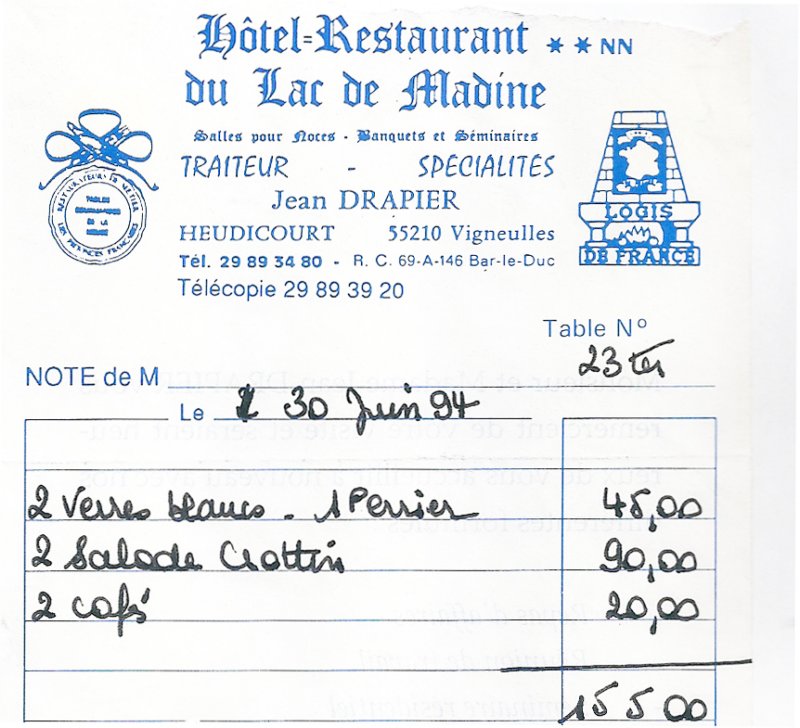 Hôtel-Restaurant ★★NN
du Lac de Madine
Salles pour Noces - Banquets et Séminaires
TRAITEUR - SPECIALITÉS
Jean DRAPIER
HEUDICOURT 55210 Vigneulles
Tél. 29 89 34 80 - R. C. 69-A-146 Bar-le-Duc
Télécopie 29 89 39 20
RESTAURATEURS DE METIER
TABLES
DE LA
DES PROVINCES FRANÇAISES
LOGIS
DE FRANCE
Table N°
23 ter
NOTE de M
Le 30 Juin 94
2 Verres blancs - 1 Perrier 45,00
2 Salade Crottin 90,00
2 café 20,00
155 00